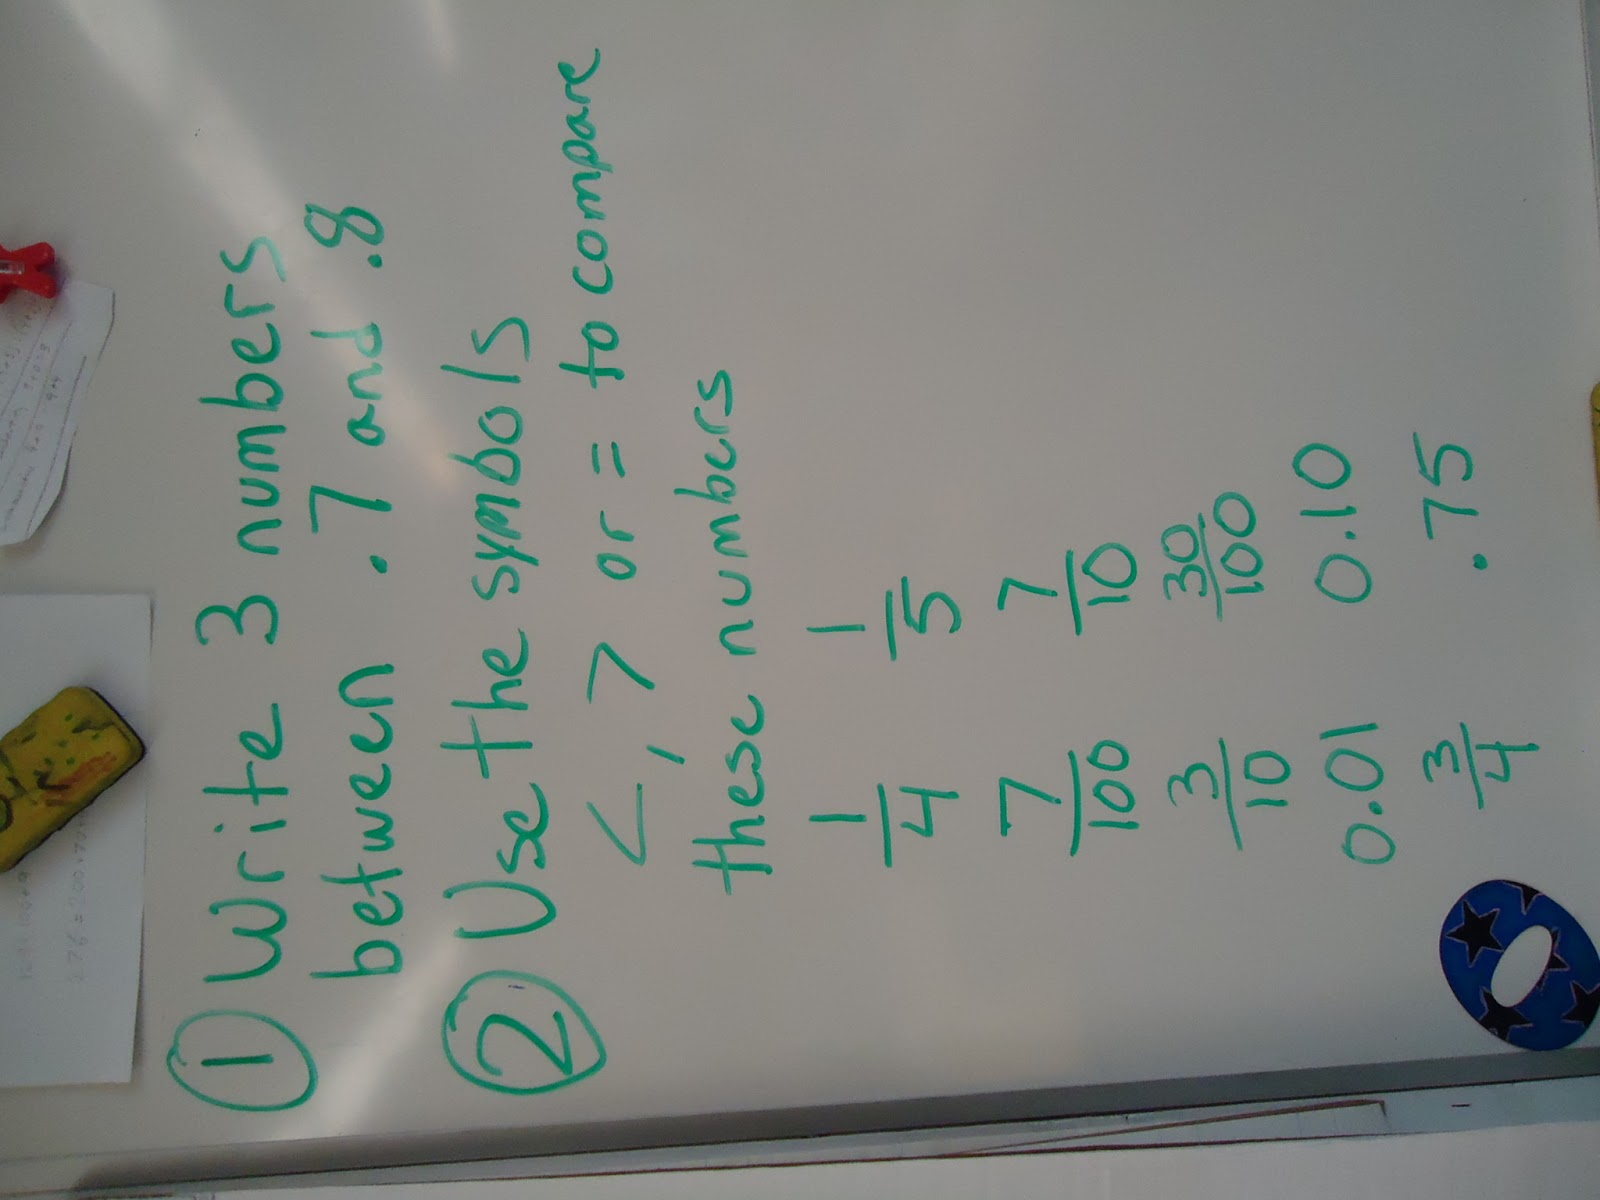 ① Write 3 numbers
between .7 and .8
② Use the symbols
<, > or = to compare
these numbers
1/4 1/5
7/100 7/10
3/10 30/100
0.01 0.10
3/4 .75